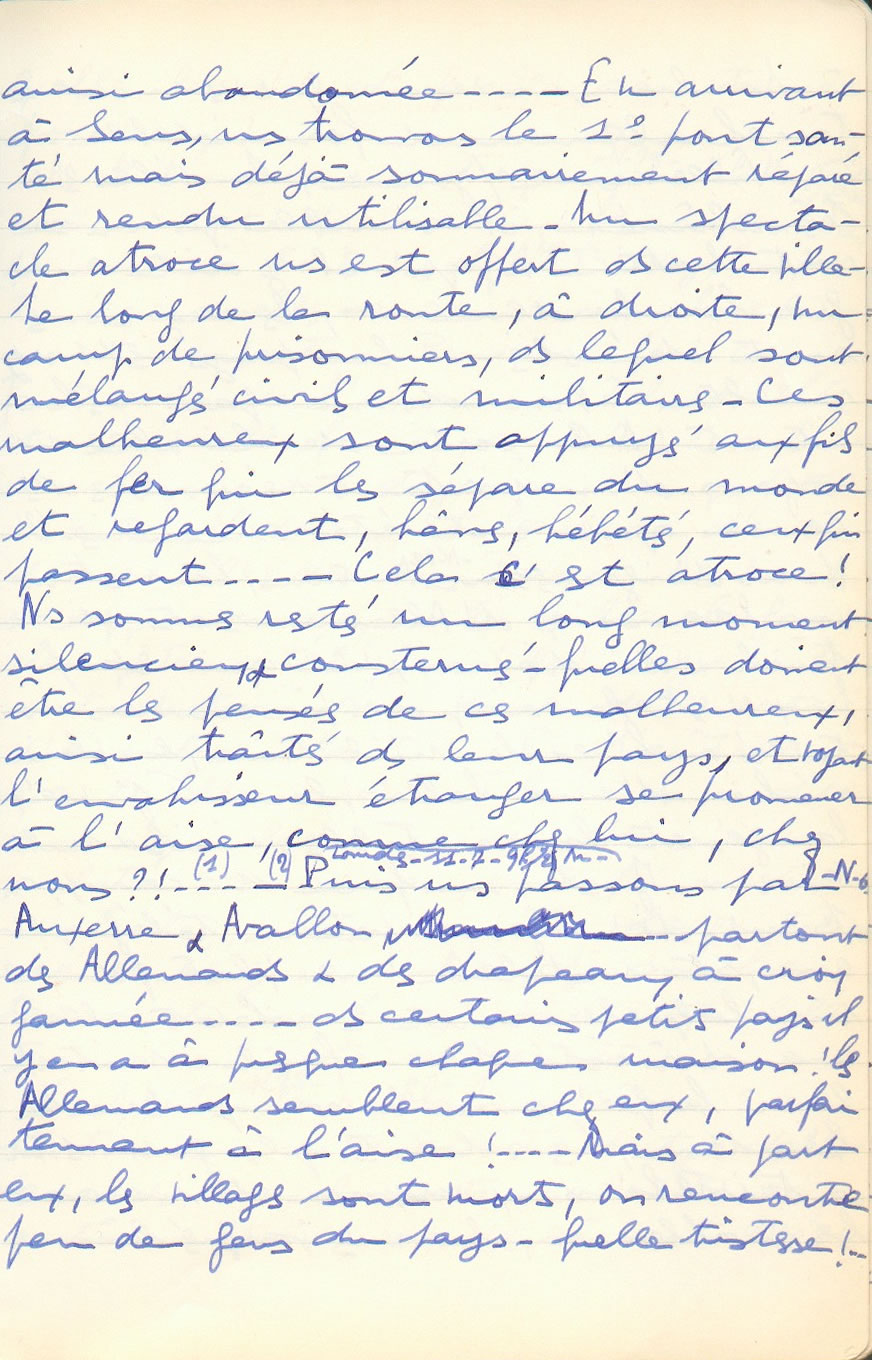 ainsi abandonnée ---- En arrivant
à Sens, ns trouvons le 1º pont sau-
té mais déjà sommairement réparé
et rendu utilisable - Un specta-
cle atroce ns est offert ds cette ville -
Le long de la route, à droite, un
camp de prisonniers, ds lequel sont
mélangés civils et militaires - Ces
malheureux sont appuyés aux fils
de fer qui les sépare du monde
et regardent, hâves, hébétés, ceux qui
passent ---- Cela c'est atroce !
Ns sommes restés un long moment
silencieux & consternés - quelles doivent
être les pensées de ces malheureux,
ainsi traîtés ds leur pays, et voyant
l'envahisseur étranger se promener
à l'aise, comme chez lui, chez
nous ?! (1) --- (2) Puis ns passons par - N-6
Auxerre & Avallon, partout
des Allemands & des drapeaux à croix
gammée ---- ds certains petits pays il
y en a à presque chaque maison ! les
Allemands semblent chez eux, parfai
temment à l'aise ! ---- Mais à part
eux, les villages sont morts, on rencontre
peu de gens du pays - quelle tristesse ! --